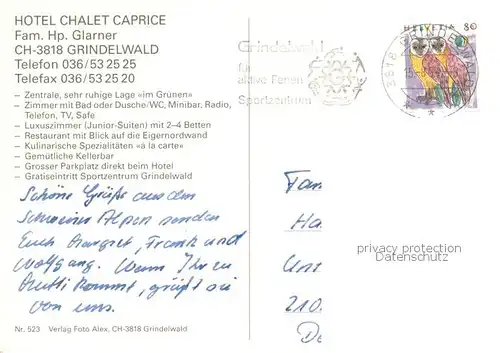 HOTEL CHALET CAPRICE
Fam. Hp. Glarner
CH-3818 GRINDELWALD
Telefon 036/53 25 25
Telefax 036/53 25 20
– Zentrale, sehr ruhige Lage «im Grünen»
– Zimmer mit Bad oder Dusche/WC, Minibar, Radio,
Telefon, TV, Safe
– Luxuszimmer (Junior-Suiten) mit 2–4 Betten
– Restaurant mit Blick auf die Eigernordwand
– Kulinarische Spezialitäten «à la carte»
– Gemütliche Kellerbar
– Grosser Parkplatz direkt beim Hotel
– Gratiseintritt Sportzentrum Grindelwald
Schöne Grüße aus den
Schweizer Alpen senden
Euch Margret, Frank und
Wolfgang. Wenn Ihr zu
Mutti kommt, grüßt sie
von uns.
Nr. 523 Verlag Foto Alex, CH-3818 Grindelwald
Grindelwald
für
aktive Ferien
Sportzentrum
3818 GRINDELWALD
HELVETIA 80
Fam
Ha
Unt
210
privacy protection
Datenschutz